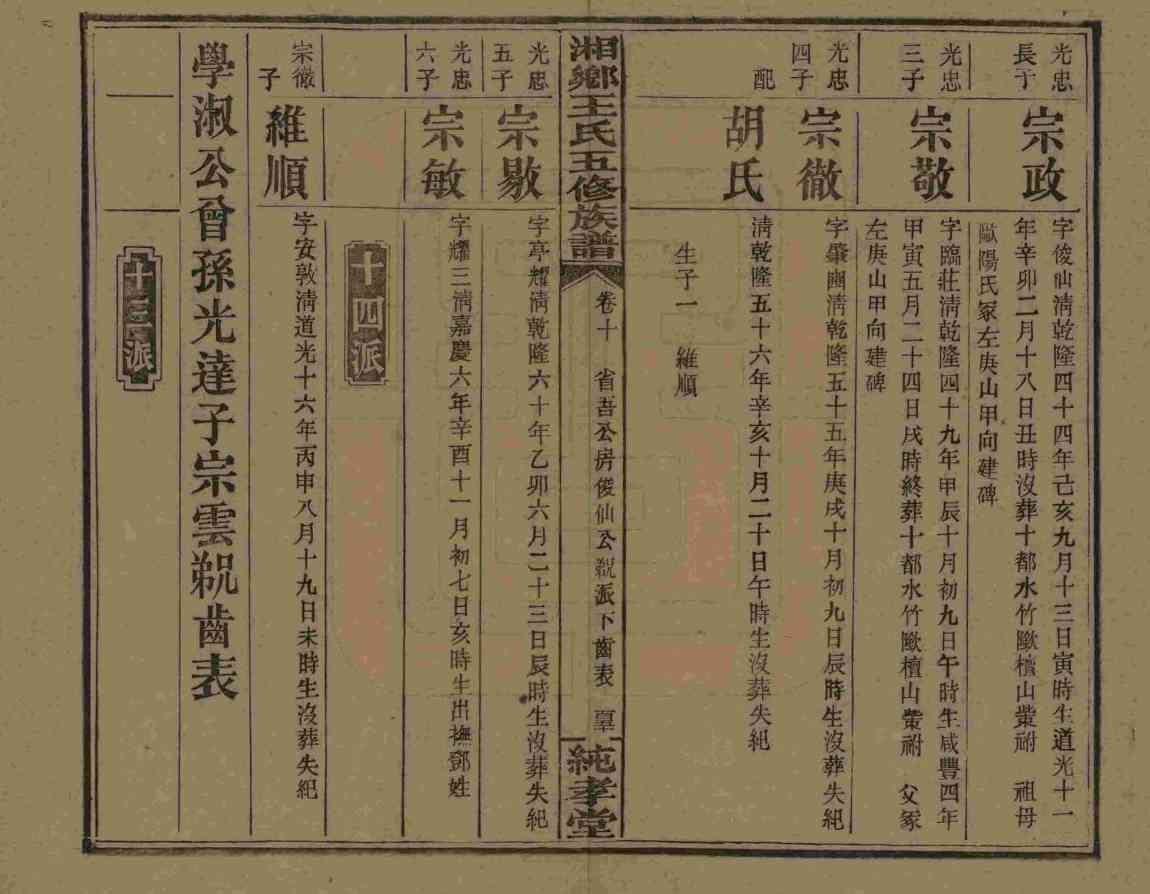 光忠長子
宗政
字俊仙清乾隆四十四年己亥九月十三日寅時生道光十一
年辛卯二月十八日丑時沒葬十都水竹歐檀山塋祔 祖母
歐陽氏冢左庚山甲向建碑
光忠三子
宗敬
字臨莊清乾隆四十九年甲辰十月初九日午時生咸豐四年
甲寅五月二十四日戌時終葬十都水竹歐檀山塋祔 父冢
左庚山甲向建碑
光忠四子
宗徹
字肇幽清乾隆五十五年庚戌十月初九日辰時生沒葬失紀
配
胡氏
清乾隆五十六年辛亥十月二十日午時生沒葬失紀
生子一 維順
湘鄉王氏五修族譜
卷十 省吾公房俊仙公派下齒表
純孝堂
光忠五子
宗敭
字亭耀清乾隆六十年乙卯六月二十三日辰時生沒葬失紀
光忠六子
宗敏
字耀三清嘉慶六年辛酉十一月初七日亥時生出撫鄧姓
十四派
宗徹子
維順
字安敦清道光十六年丙申八月十九日未時生沒葬失紀
學淑公曾孫光達子宗雲齒表
十三派